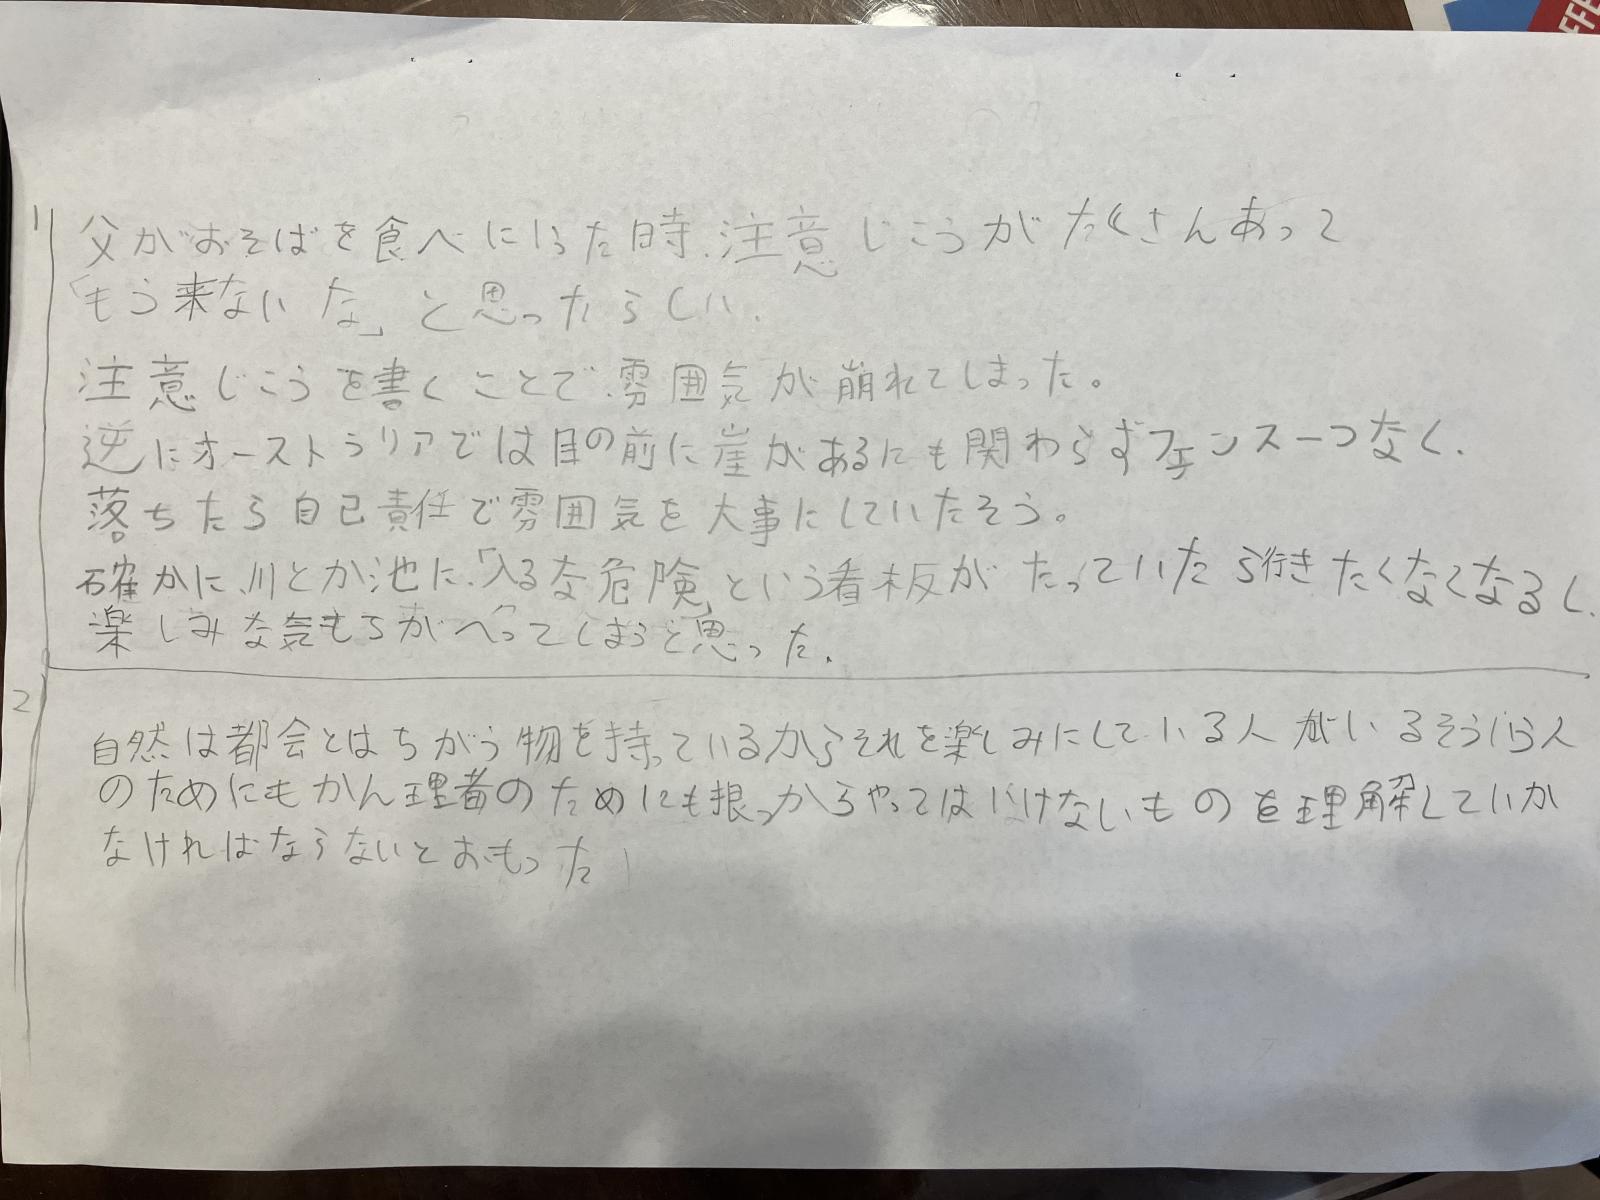 FFE
1
父がおそばを食べにいった時、注意じこうがたくさんあって
「もう来ないな」と思ったらしい。
注意じこうを書くことで、雰囲気が崩れてしまった。
逆にオーストラリアでは目の前に崖があるにも関わらずフェンス一つなく、
落ちたら自己責任で雰囲気を大事にしていたそう。
確かに、川とか池に、「入るな危険」という看板がたっていたら行きたくなくなるし、
楽しみな気もちがへってしまうと思った。
2
自然は都会とはちがう物を持っているからそれを楽しみにしている人がいるそういう人
のためにもかん理者のためにも根っからやってはいけないものを理解していか
なければならないとおもった